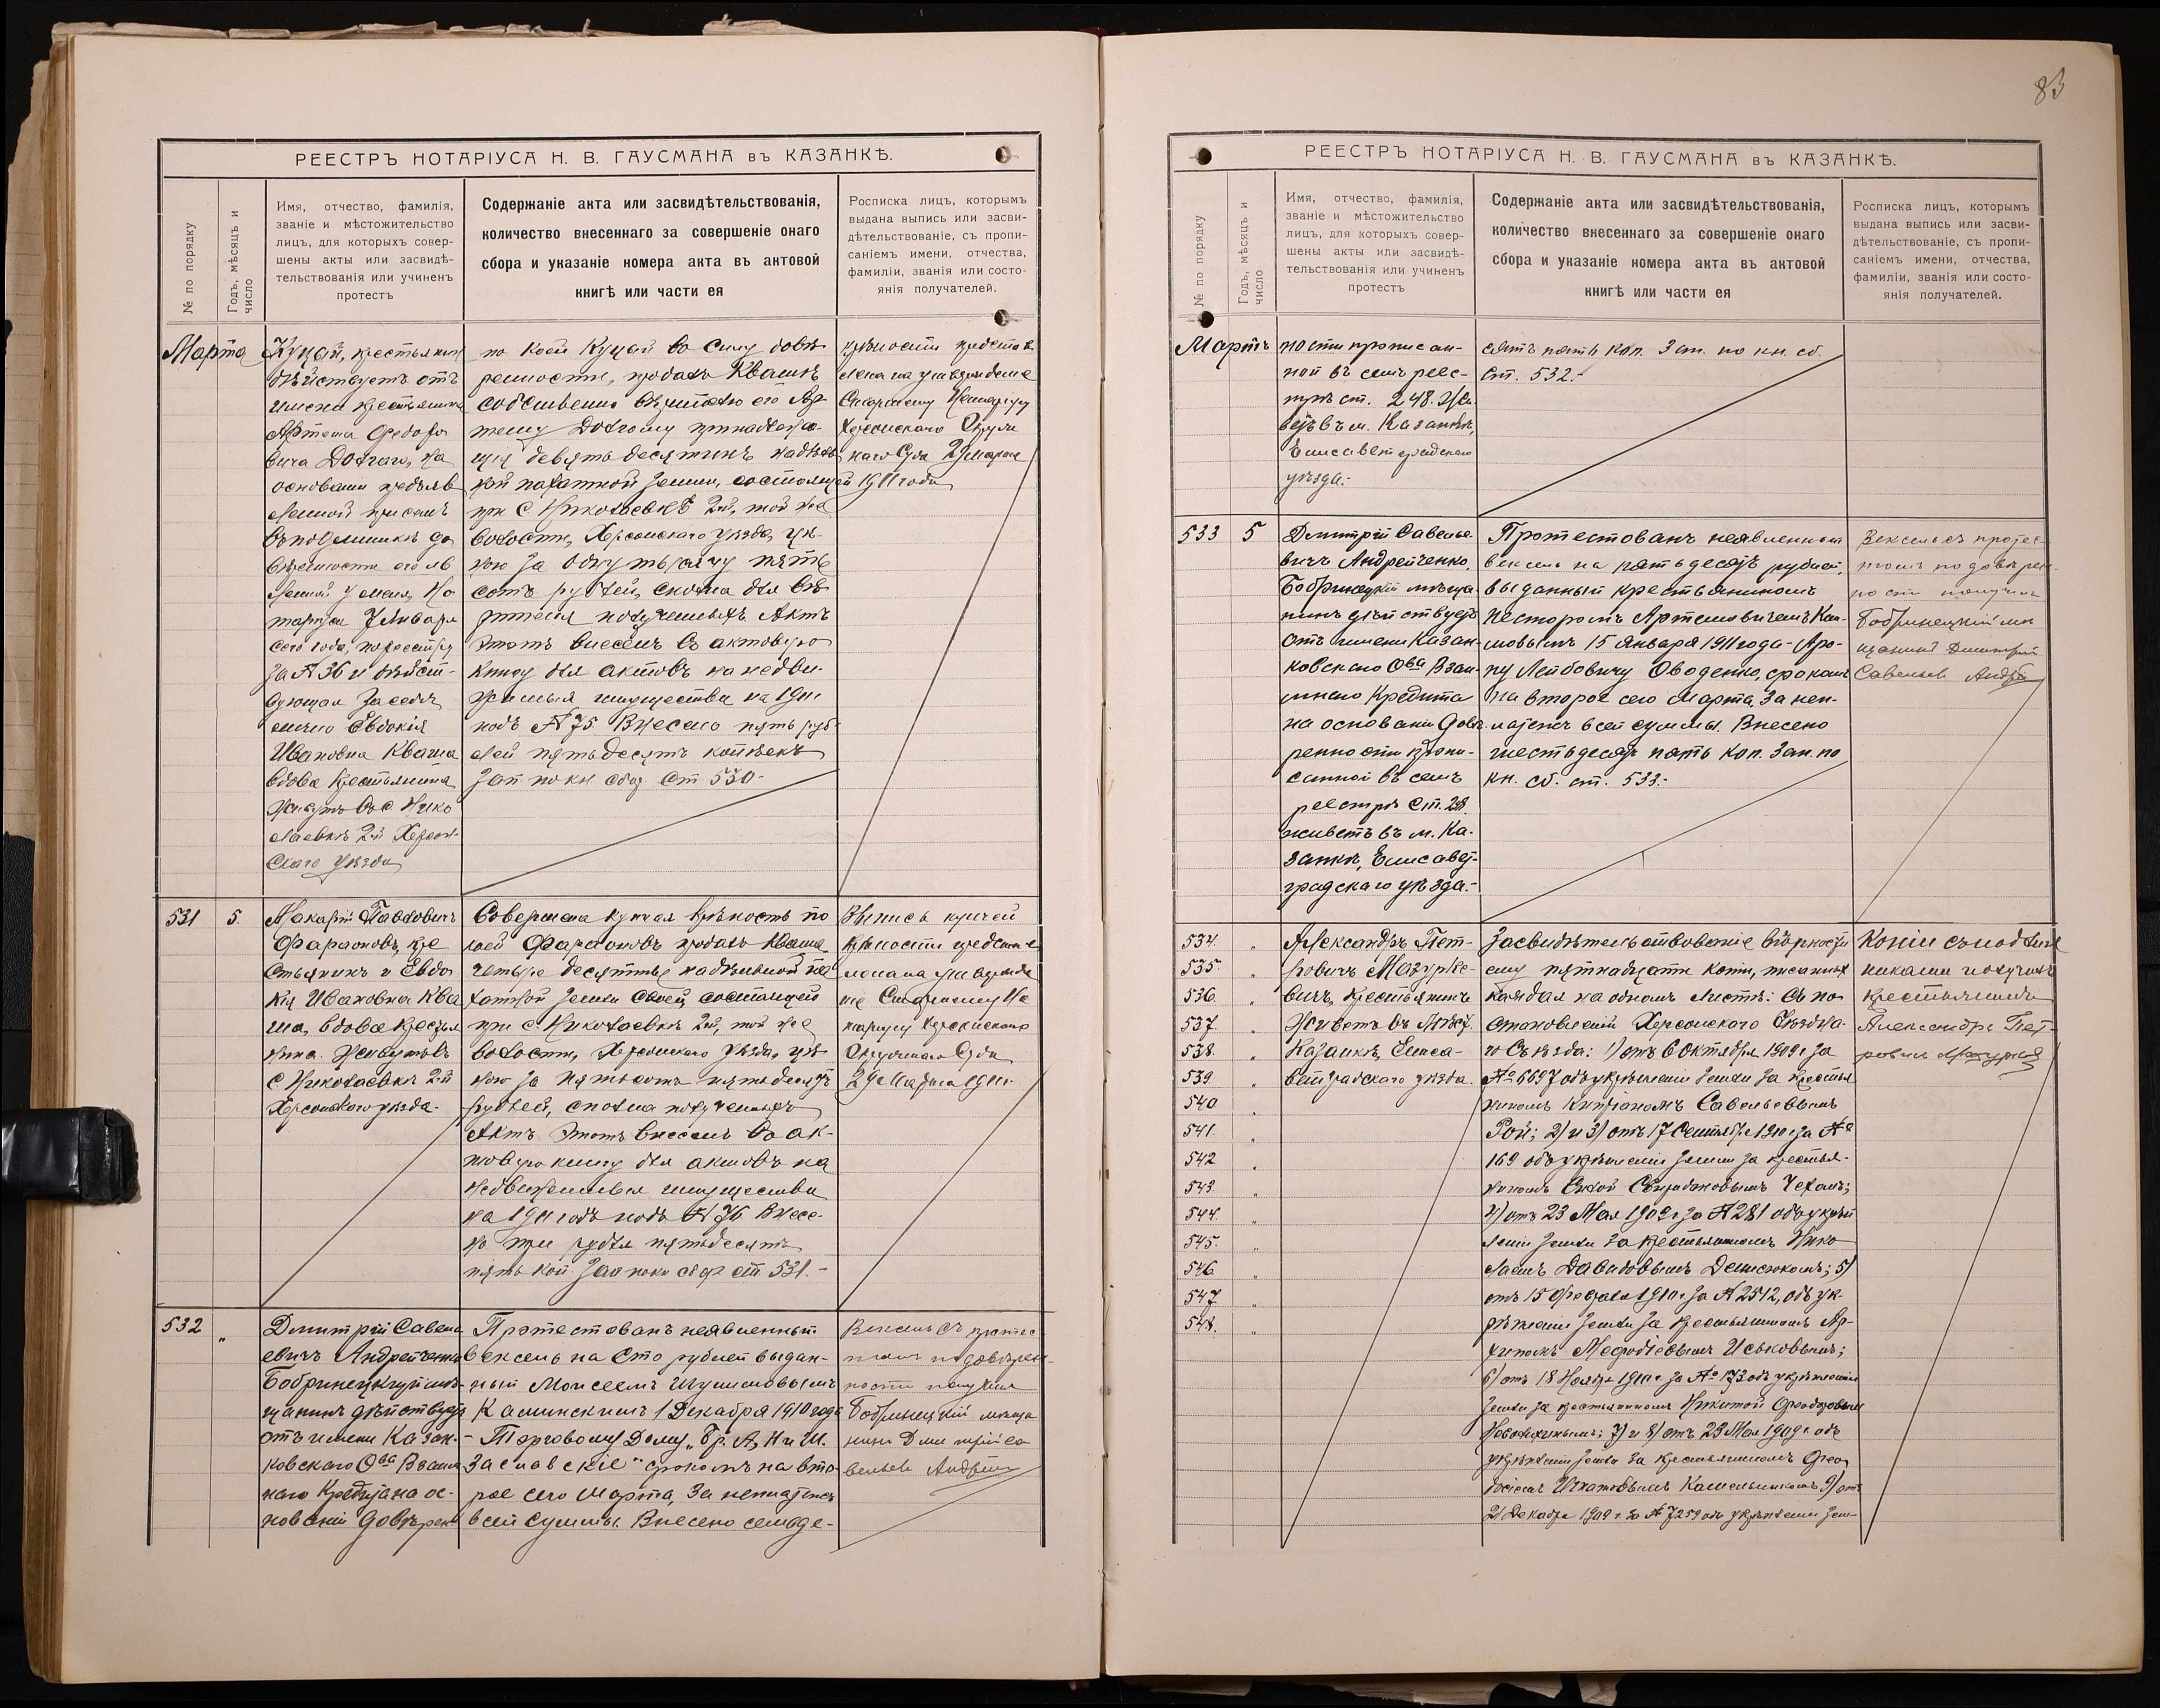 83
РЕЕСТРЪ НОТАРІУСА Н. В. ГАУСМАНА въ КАЗАНКѢ.
№ по порядку
Годъ, мѣсяцъ и
число
Имя, отчество, фамилія,
званіе и мѣстожительство
лицъ, для которыхъ совер-
шены акты или засвидѣ-
тельствованія или учиненъ
протестъ
Содержаніе акта или засвидѣтельствованія,
количество внесеннаго за совершеніе онаго
сбора и указаніе номера акта въ актовой
книгѣ или части ея
Росписка лицъ, которымъ
выдана выпись или засви-
дѣтельствованіе, съ пропи-
саніемъ имени, отчества,
фамиліи, званія или состо-
янія получателей.
Марта
Куцай, крестьянинъ
дѣйствуетъ отъ
имени крестьянина
Артема Федоро
вича Долгаго, на
основаніи предъяв
ленной при семъ
въ подлинникѣ до
вѣренности
Но
таріуса 7 Января
сего года, по реестру
за № 36 и дѣйст-
вующая за себя
лично Евдокія
Ивановна Кваша
вдова крестьянина
Живутъ въ с Нико
лаевкѣ 2й Херсон-
скаго уѣзда
по коей Куцай во силу довѣ
ренности, продалъ Квашѣ
собственно вѣрителю его Ар-
тему Долгому принадлежа-
щія девять десятинъ надѣль
ной пахатной земли, состоящей
при с Николаевкѣ 2й, той же
волости, Херсонскаго уѣзда, цѣ-
ною за одну тысячу пять
сотъ рублей, сполна для вѣ
рителя полученныхъ Актъ
этотъ внесенъ въ актовую
книгу для актовъ на недви-
жимыя имущества на 1911
подъ № 75. Внесено пять руб-
лей пятьдесятъ копѣекъ
Зап по кн сбор ст 530-
крѣпости представ
лена на утвержденіе
Старшему Нотаріусу
Херсонскаго Окруж
наго Суда 29 Марта
1911 года
531
5.
Макарій Павловичъ
Фараоновъ, кре
стьянинъ и Евдо
кія Ивановна Ква
ша, вдова крестья
нина Живутъ въ
с Николаевкѣ 2й
Херсонскаго уѣзда-
Совершена купчая крѣпость по
коей Фараоновъ продалъ Квашѣ
четыре десятины надѣльной па
хатной земли своей, состоящей
при с. Николаевкѣ 2й, той же
волости, Херсонскаго уѣзда, цѣ
ною за пятьсотъ пятьдесятъ
рублей, сполна полученныхъ
Актъ этотъ внесенъ въ ак-
товую книгу для актовъ на
недвижимыя имущества
на 1911 годъ подъ № 76 Внесе-
но три рубля пятьдесятъ
пять коп. Зап по кн сбор ст. 531.-
Выпись купчей
крѣпости представ
лена на утвержде
ніе Старшему Но
таріусу Херсонскаго
Окружнаго Суда
29 Марта 1911 г.
532
„
Дмитрій Савель
евичъ Андрейченко
Бобринецкій мѣ-
щанинъ дѣйствуетъ
отъ имени Казан-
ковскаго Ова Взаим
наго Кредита на ос-
нованіи довѣрен
Протестованъ неявленный
вексель на сто рублей выдан-
ный Моисеемъ Шулимовымъ
Каминскимъ 1 Декабря 1910 года
- Торговому Дому „Бр. А, Н и Ш.
Заславскіе" срокомъ на вто-
рое сего Марта, за неплатежъ
всей суммы. Внесено семьде-
Вексель съ протес
томъ по довѣрен
ности получилъ
Бобринецкій мѣща
нинъ Дмитрій Са
вельев Андрей
РЕЕСТРЪ НОТАРІУСА Н. В. ГАУСМАНА въ КАЗАНКѢ.
№ по порядку
Годъ, мѣсяцъ и
число
Имя, отчество, фамилія,
званіе и мѣстожительство
лицъ, для которыхъ совер-
шены акты или засвидѣ-
тельствованія или учиненъ
протестъ
Содержаніе акта или засвидѣтельствованія,
количество внесеннаго за совершеніе онаго
сбора и указаніе номера акта въ актовой
книгѣ или части ея
Росписка лицъ, которымъ
выдана выпись или засви-
дѣтельствованіе, съ пропи-
саніемъ имени, отчества,
фамиліи, званія или состо-
янія получателей.
Мартъ
ности прописан-
ной въ семъ реес-
трѣ ст. 248. Жи
ветъ въ м. Казанкѣ,
Елисаветградскаго
уѣзда.-
сятъ пять коп. Зап. по кн. сб.
ст. 532.-
533
5
Дмитрій Савелье-
вичъ Андрейченко,
Бобринецкій мѣща
нинъ дѣйствуетъ
отъ имени Казан-
ковскаго Ова Взаи-
мнаго Кредита
на основаніи довѣ-
ренности пропи-
санной въ семъ
реестрѣ ст. 248.
живетъ въ м. Ка-
занкѣ, Елисавет-
градскаго уѣзда.-
Протестованъ неявленный
вексель на пятьдесятъ рублей,
выданный крестьяниномъ
Несторомъ Артемовичемъ
15 Января 1911 года - Аро-
ну Лейбовичу Ободенко, срокомъ
на второе сего Марта за неп-
латежъ всей суммы. Внесено
шестьдесятъ пять коп. Зап. по
кн. сб. ст. 533.-
Вексель съ протес-
томъ по довѣрен-
ности получилъ
Бобринецкій мѣ
щанинъ Дмитрій
Савельев Андрей
534.
535.
536.
537.
538.
539.
540
541.
542
543.
544.
545.
546
547
548.
Александръ Пет-
ровичъ Мазурке-
вичъ, крестьянинъ
Живетъ въ Мѣст.
Казанкѣ, Елиса-
ветградскаго уѣзда.
Засвидѣтельствованіе вѣрности
ему пятнадцати копій, писанныхъ
каждая на одномъ листѣ: съ по
становленій Херсонскаго Уѣздна-
го Съѣзда: 1) отъ 6 Октября 1909 г за
№ 6697 объ укрѣпленіи земли за крестья
ниномъ Кипріаномъ Савельевымъ
Рой; 2) и 3) отъ 17 Сентября 1910 г за №
169 объ укрѣпленіи земли за крестья-
ниномъ
4) отъ 23 Мая 1909 г за № 281 объ укрѣп
леніи земли за крестьяниномъ Нико
лаемъ Давидовымъ Денисюкомъ; 5)
отъ 15 Февраля 1910 г за № 2512, объ ук-
рѣпленіи земли за крестьяниномъ Ар-
хипомъ Мефодіевымъ Иськовымъ;
6) отъ 18 Ноября 1910 г за № 173 объ укрѣпленіи
земли за крестьяниномъ Никитой
7) и 8) отъ 23 Мая 1909 г. объ
укрѣпленіи земли за крестьяниномъ Фео
досіемъ Игнатовымъ 9) отъ
21 Декабря 1909 г. за № 7259 объ укрѣпленіи зем-
Копіи съ подлин
никами получилъ
крестьянинъ
Александръ Пет-
ровичъ